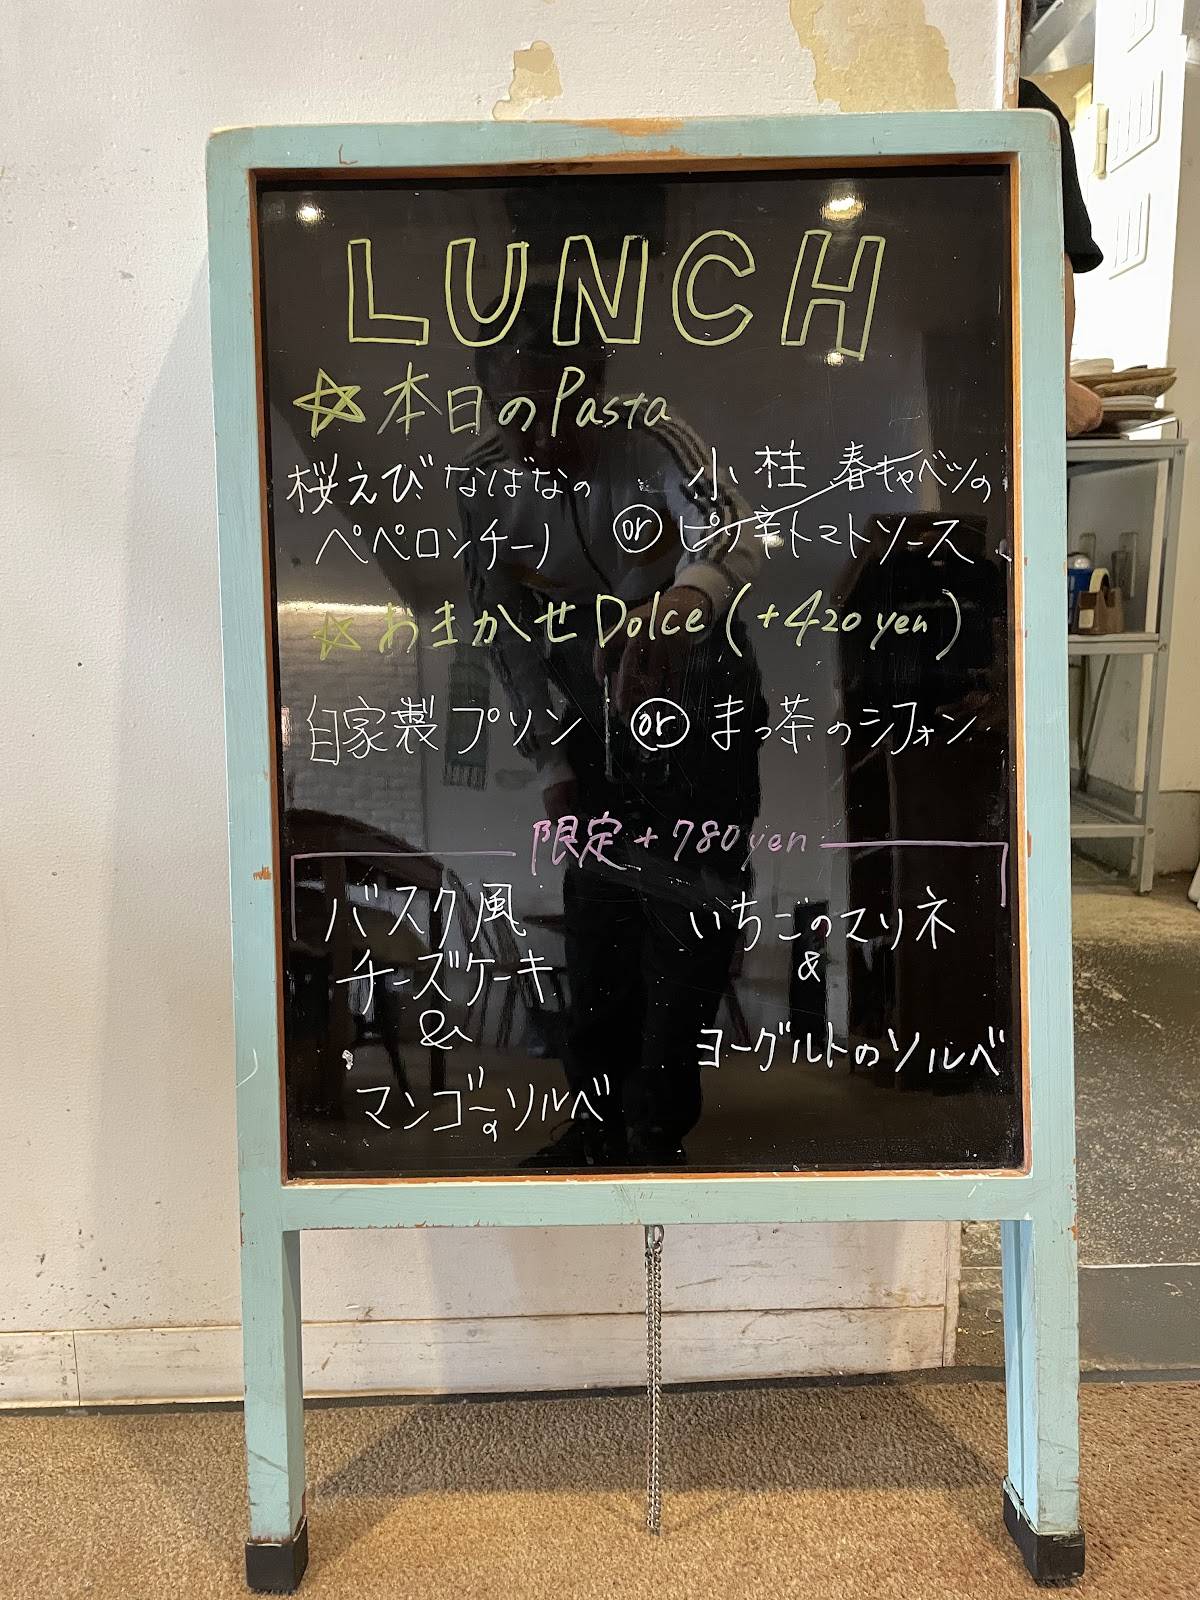 LUNCH
☆本日のPasta
桜えび なばなの
ペペロンチーノ
or
小柱 春キャベツの
ピリ辛トマトソース
☆おまかせDolce (+420yen)
自家製プリン or まっ茶のシフォン
限定+780yen
バスク風
チーズケーキ
&
マンゴーのソルベ
いちごのマリネ
&
ヨーグルトのソルベ